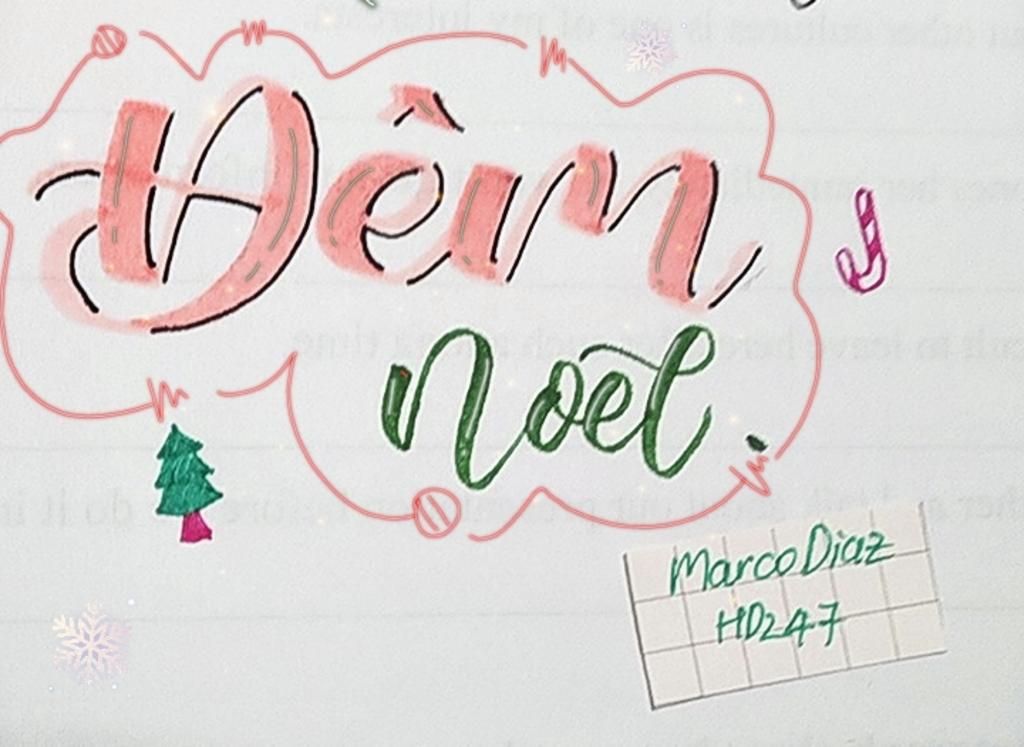 Đêm
noel.
Marco Diaz
HD247